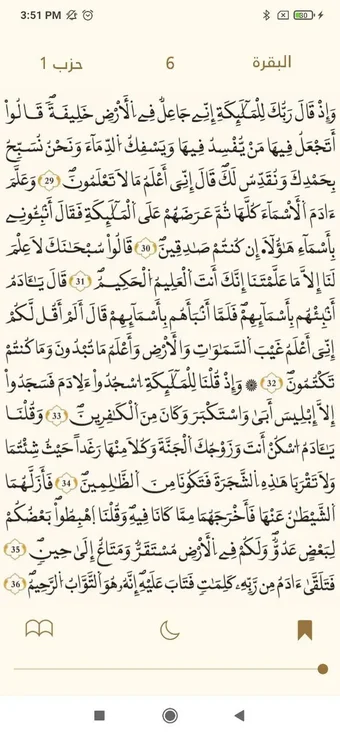 3:51 PM
80
البقرة 6 حزب 1
وَإِذْ قَالَ رَبُّكَ لِلْمَلَٰٓئِكَةِ إِنِّے جَاعِلٌ فِے اِلْأَرْضِ خَلِيفَةٗۖ قَالُوٓاْ
أَتَجْعَلُ فِيهَا مَنْ يُّفْسِدُ فِيهَا وَيَسْفِكُ اُلدِّمَآءَ وَنَحْنُ نُسَبِّحُ
بِحَمْدِكَ وَنُقَدِّسُ لَكَۖ قَالَ إِنِّيَ أَعْلَمُ مَا لَا تَعْلَمُونَۖ 29 وَعَلَّمَ
ءَادَمَ اَلْأَسْمَآءَ كُلَّهَا ثُمَّ عَرَضَهُمْ عَلَى اَلْمَلَٰٓئِكَةِ فَقَالَ أَنۢبِـُٔونِے
بِأَسْمَآءِ هَٰٓؤُلَآءِ اِن كُنتُمْ صَٰدِقِينَۖ 30 قَالُواْ سُبْحَٰنَكَ لَا عِلْمَ
لَنَآ إِلَّا مَا عَلَّمْتَنَآ إِنَّكَ أَنتَ اَلْعَلِيمُ اُلْحَكِيمُۖ 31 قَالَ يَٰٓـَٔادَمُ
أَنۢبِئْهُم بِأَسْمَآئِهِمْۖ فَلَمَّآ أَنۢبَأَهُم بِأَسْمَآئِهِمْ قَالَ أَلَمَ اَقُل لَّكُمُۥٓ
إِنِّيَ أَعْلَمُ غَيْبَ اَلسَّمَٰوَٰتِ وَالْأَرْضِ وَأَعْلَمُ مَا تُبْدُونَ وَمَا كُنتُمْ
تَكْتُمُونَۖ 32 ۞ وَإِذْ قُلْنَا لِلْمَلَٰٓئِكَةِ اِسْجُدُواْ لِأٓدَمَ فَسَجَدُوٓاْ
إِلَّآ إِبْلِيسَ أَبَىٰ وَاسْتَكْبَرَ وَكَانَ مِنَ اَلْكَٰفِرِينَۖ 33 وَقُلْنَا
يَٰٓـَٔادَمُ اُسْكُنَ اَنتَ وَزَوْجُكَ اَلْجَنَّةَ وَكُلَا مِنْهَا رَغَداً حَيْثُ شِئْتُمَا
وَلَا تَقْرَبَا هَٰذِهِ اِلشَّجَرَةَ فَتَكُونَا مِنَ اَلظَّٰلِمِينَۖ 34 فَأَزَلَّهُمَا
اَلشَّيْطَٰنُ عَنْهَا فَأَخْرَجَهُمَا مِمَّا كَانَا فِيهِۖ وَقُلْنَا اَهْبِطُواْ بَعْضُكُمْ
لِبَعْضٍ عَدُوّٞۖ وَلَكُمْ فِے اِلْأَرْضِ مُسْتَقَرّٞ وَمَتَٰعٌ اِلَىٰ حِينٖۖ 35
فَتَلَقَّىٰٓ ءَادَمُ مِن رَّبِّهِۦ كَلِمَٰتٖ فَتَابَ عَلَيْهِۖ إِنَّهُۥ هُوَ اَلتَّوَّابُ اُلرَّحِيمُۖ 36